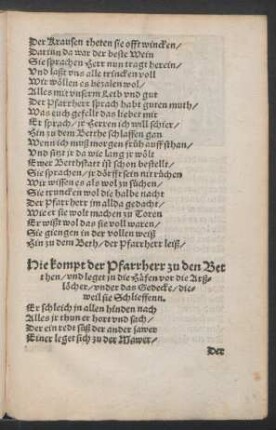 Der Krausen theten sie offt wincken/
Darinn da war der beste Wein
Sie sprachen Herr nun tragt herein/
Vnd lasst vns alle trincken voll
Wir wöllen es bezalen wol/
Alles mit vnserm Leib vnd gut
Der Pfarrherr sprach habt guten muth/
Was euch gefellt das liebet mir
Er sprach/ jr Herren ich will schier/
Hin zu dem Bethe schlaffen gan
Wenn ich muß morgen früh auffsthan/
Vnd sitzt jr da wie lang jr wölt
Ewer Bethstatt ist schon bestellt/
Sie sprachen/ jr dörfft sein nit rüchen
Wir wissen es als wol zu süchen/
Sie truncken wol die halbe nacht
Der Pfarrherr im allda gedacht/
Wie er sie wolt machen zu Toren
Er wist wol das sie voll waren/
Sie giengen in der vollen weiß
Hin zu dem Beth/ der Pfarrherr leiß/
Hie kompt der Pfarrherr zu den Bet
then/ vnd leget jn die Häfen vor die Arß-
löcher/ vnder das Gedecke/ die-
weil sie Schlieffenn.
Er schleich in allen hinden nach
Alles jr thun er hort vnd sach/
Der ein rede süß der ander sawer
Einer leget sich zu der Mawer/
Der